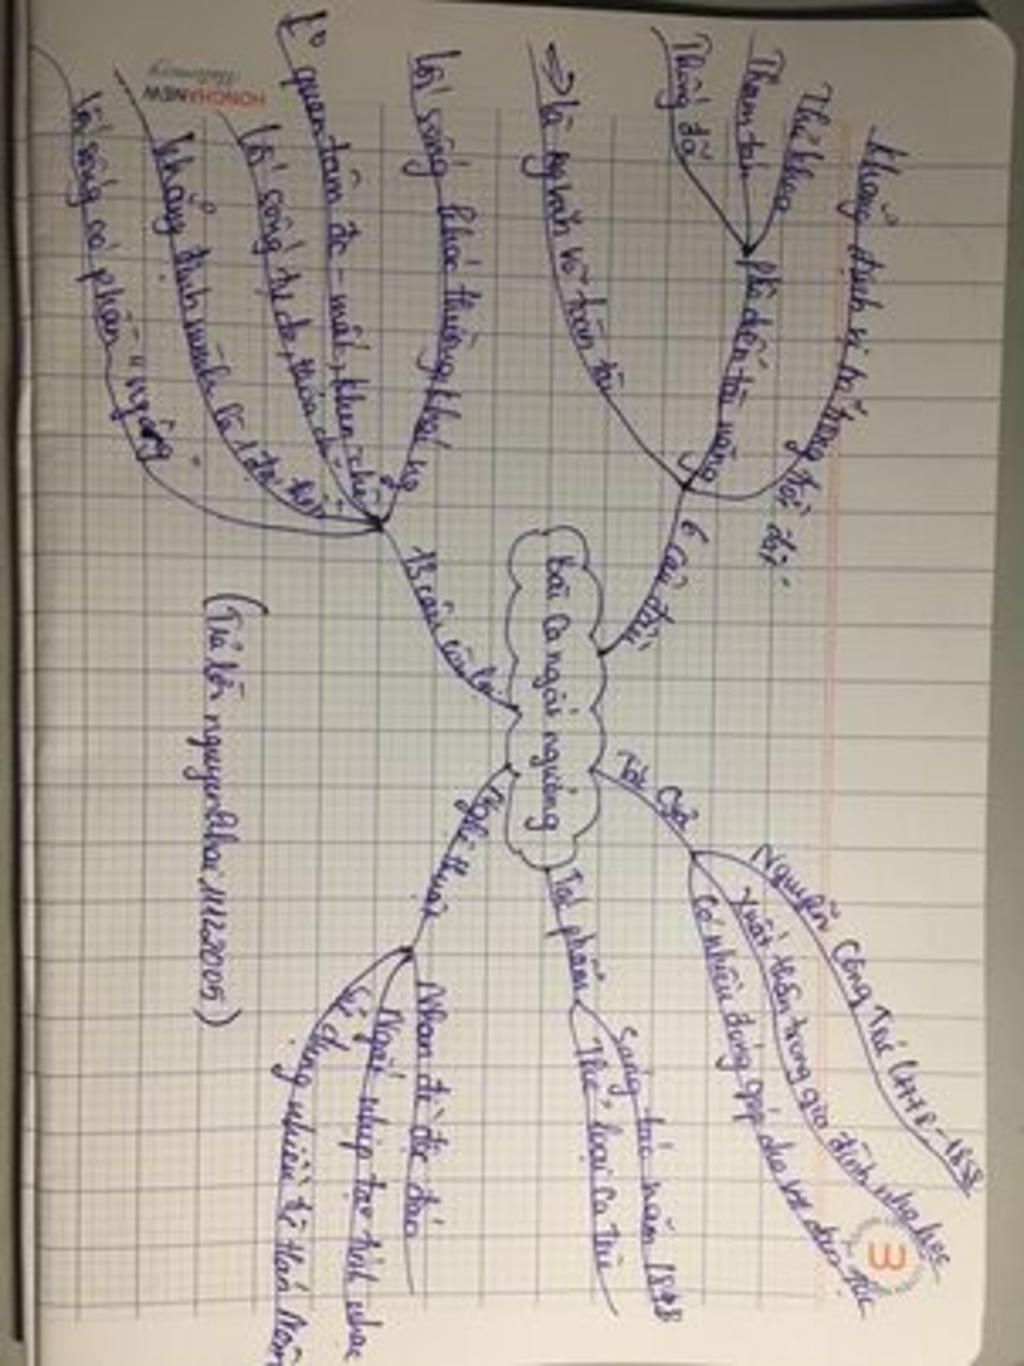 bài ca ngất ngưởng
Tác Giả
Nguyễn Công Trứ (1778-1858
Xuất thân trong gia đình nho học
Có nhiều đóng góp cho
dân tộc
Tác phẩm
Sáng tác năm 1848
Thể loại Ca Trù
Nghệ thuật
Nhan đề độc đáo
Ngắt nhịp tạo tính nhạc
sử dụng nhiều từ Hán Nôm
6 câu đầu
Khẳng định vị trí trong trời đất.
Phô diễn tài năng
Thủ khoa
Tham tán
Tổng đốc
=> là người văn võ toàn tài
13 câu còn lại
lối sống khác thường
quan tâm đc - mất, khen chê
lối sống tự do,
khẳng định mình là 1 đại thần
lối sống có phần "ngông"
(Trả lời nguyenkhac11122005)
HONGHANEW
Stationery
3